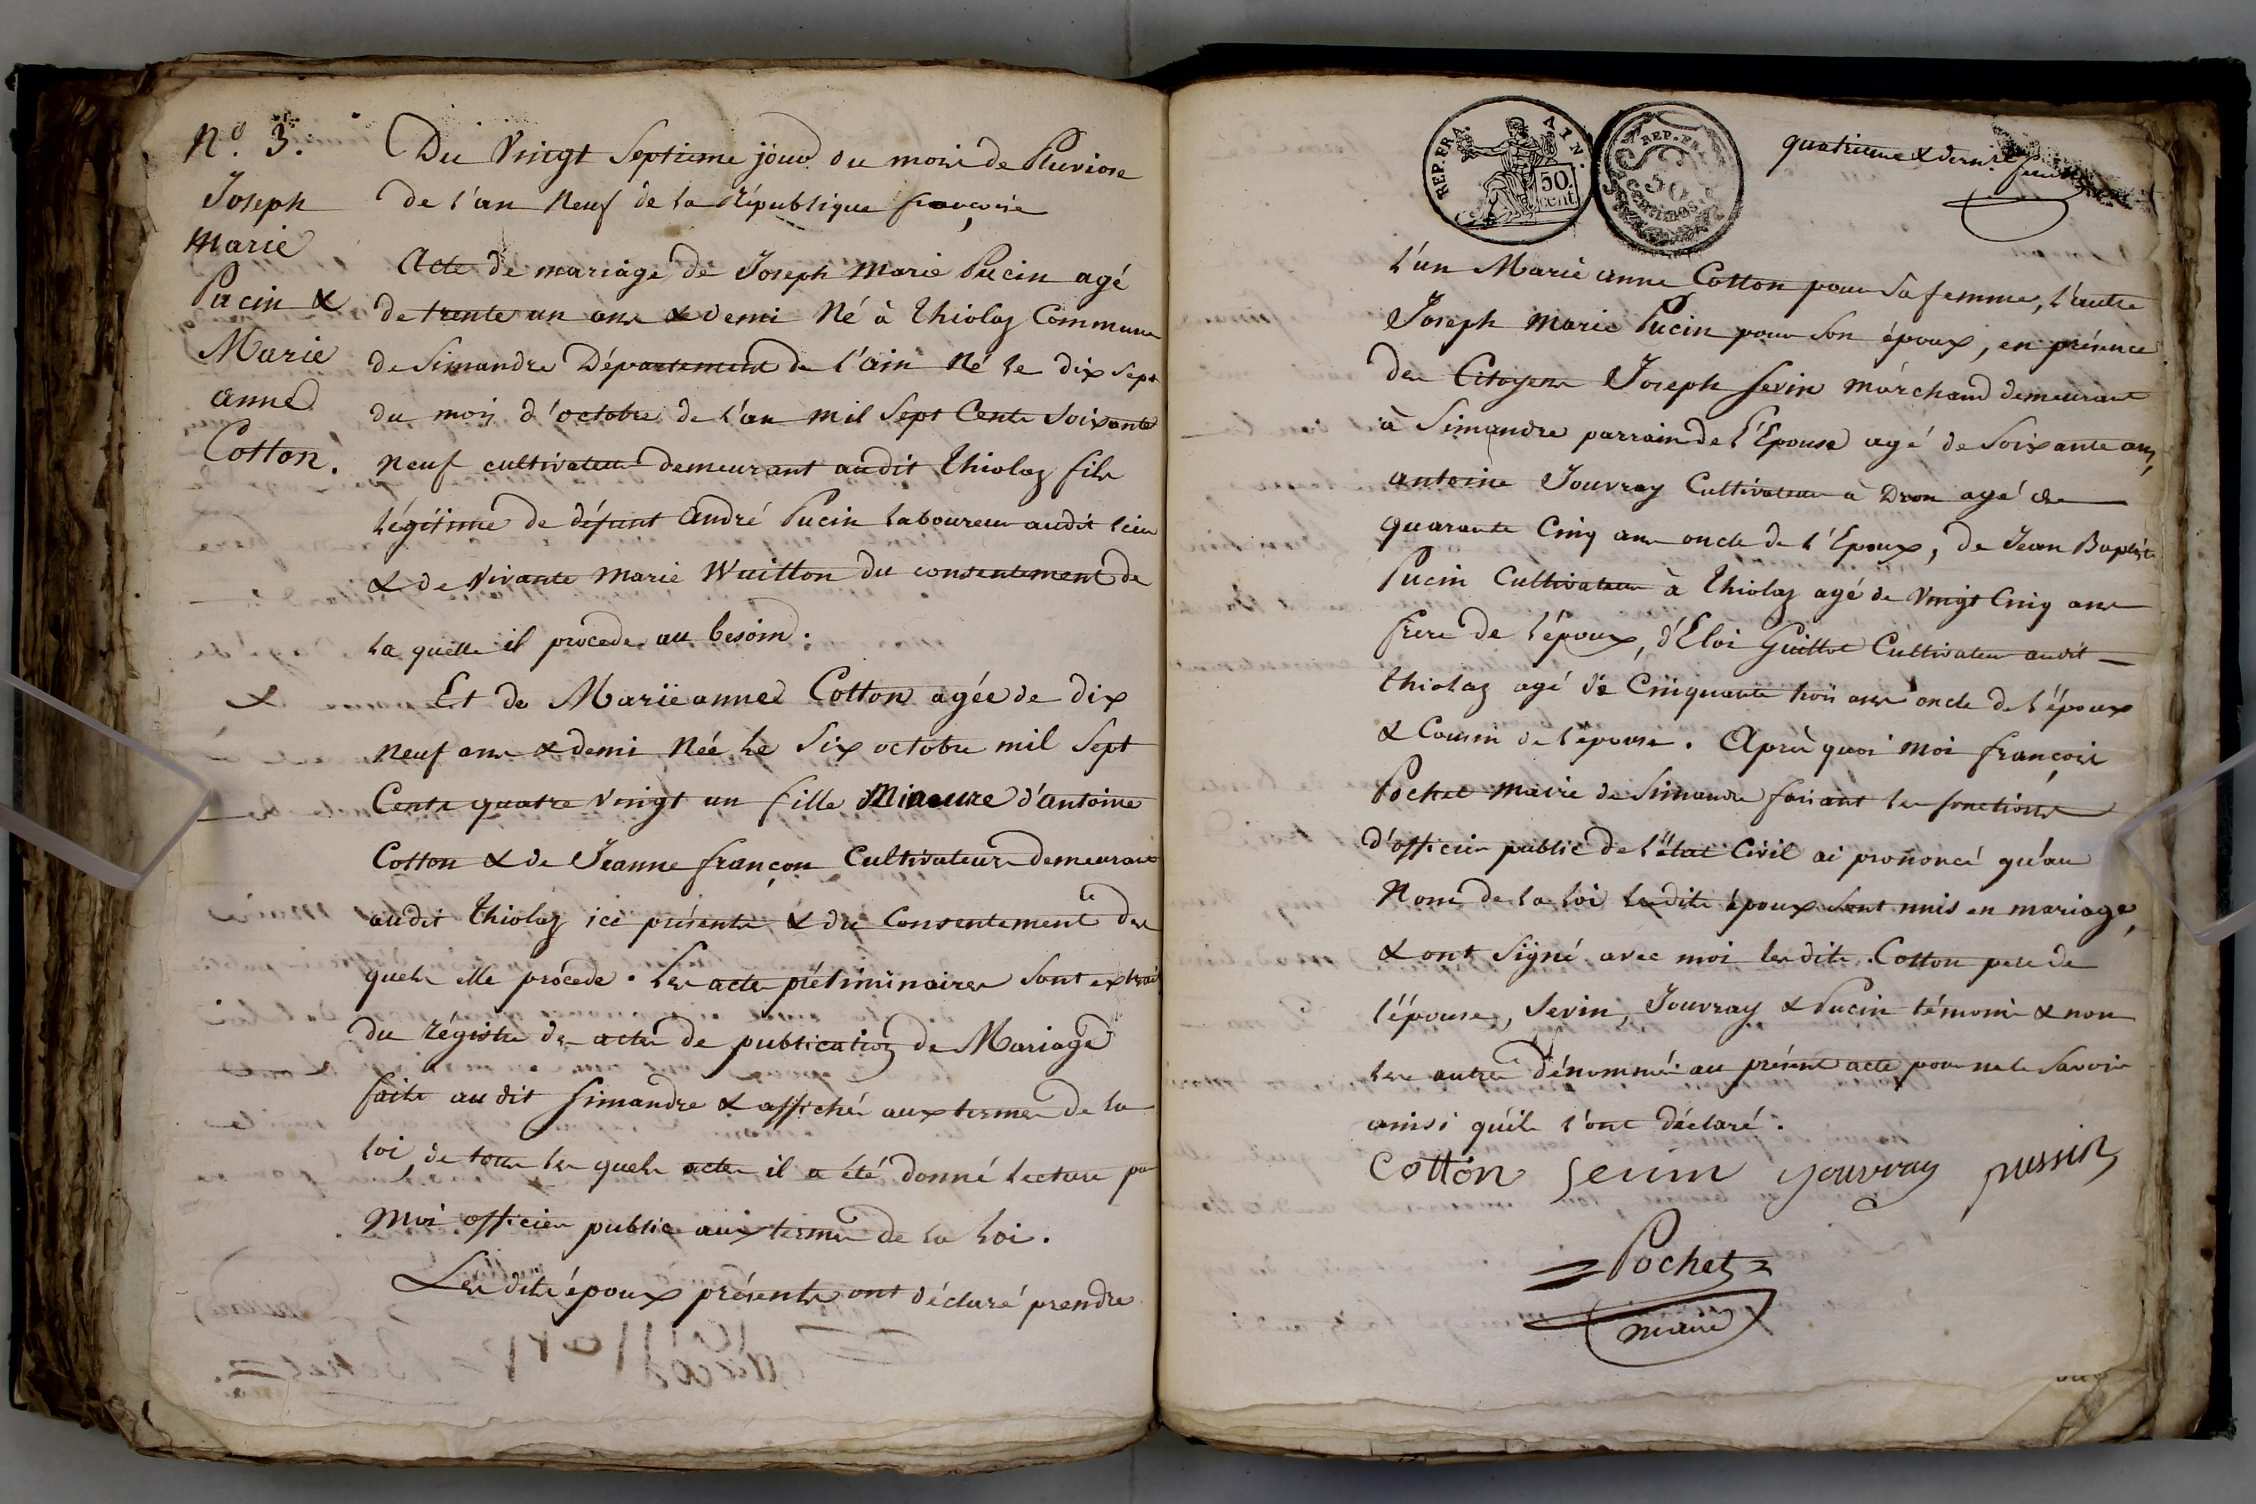 N.º 3.
Joseph
Marie
Pucin &
Marie
anne
Cotton.
Du Vingt Septieme jour du mois de Pluviose
de l'an Neuf de la République françoise
Acte de mariage de Joseph Marie Pucin agé
de trente un ans & demi Né à Thiolaz Commune
de Simandre Département de l'ain Né le dix sept
du mois d'octobre de l'an mil Sept Cents Soixante
Neuf cultivateur demeurant audit Thiolaz fils
légitime de défunt André Pucin laboureur audit lieu
& de Vivante Marie Wuitton du consentement de
la quelle il procede au besoin.
Et de Marie anne Cotton agée de dix
neuf ans & demi Née le Six octobre mil Sept
Cents quatre Vingt un fille Mineure d'antoine
Cotton & de Jeanne françon Cultivateurs demeurant
audit Thiolaz ici présents & du Consentement des
quels elle procede. Les actes préliminaires sont extrait
du régistre des actes de publication de Mariage
faite audit Simandre & affichés aux termes de la
loi, de tous les quels actes il a été donné lecture par
Moi officier public aux termes de la loi.
Les dits époux présents ont déclaré prendre
REP. FRA.
AIN.
50.
cent.
REP. FRA.
50
CENTIMES
quatrieme & dernier
l'un Marie anne Cotton pour sa femme, l'autre
Joseph Marie Pucin pour son époux, en présence
des Citoyens Joseph Sevin Marchand demeurant
à Simandre parrain de l'Epouse agé de Soixante ans,
antoine Jouvray Cultivateur à Dron agé de
quarante Cinq ans oncle de l'Epoux, de Jean Baptiste
Pucin Cultivateur à Thiolaz agé de Vingt Cinq ans
frere de l'époux, d'Eloi Guillot Cultivateur audit
Thiolaz agé de Cinquante trois ans oncle de l'époux
& Cousin de l'épouse. Après quoi moi françois
Pochet Maire de Simandre faisant les fonctions
d'officier public de l'état Civil ai prononcé qu'au
Nom de la loi lesdits époux sont unis en mariage,
& ont signé avec moi lesdits Cotton pere de
l'épouse, Sevin, Jouvray & Pucin témoins & non
les autres dénommés au présent acte pour ne le savoir
ainsi qu'ils l'ont déclaré.
Cotton Sevin Jouvray pussin
Pochet
maire